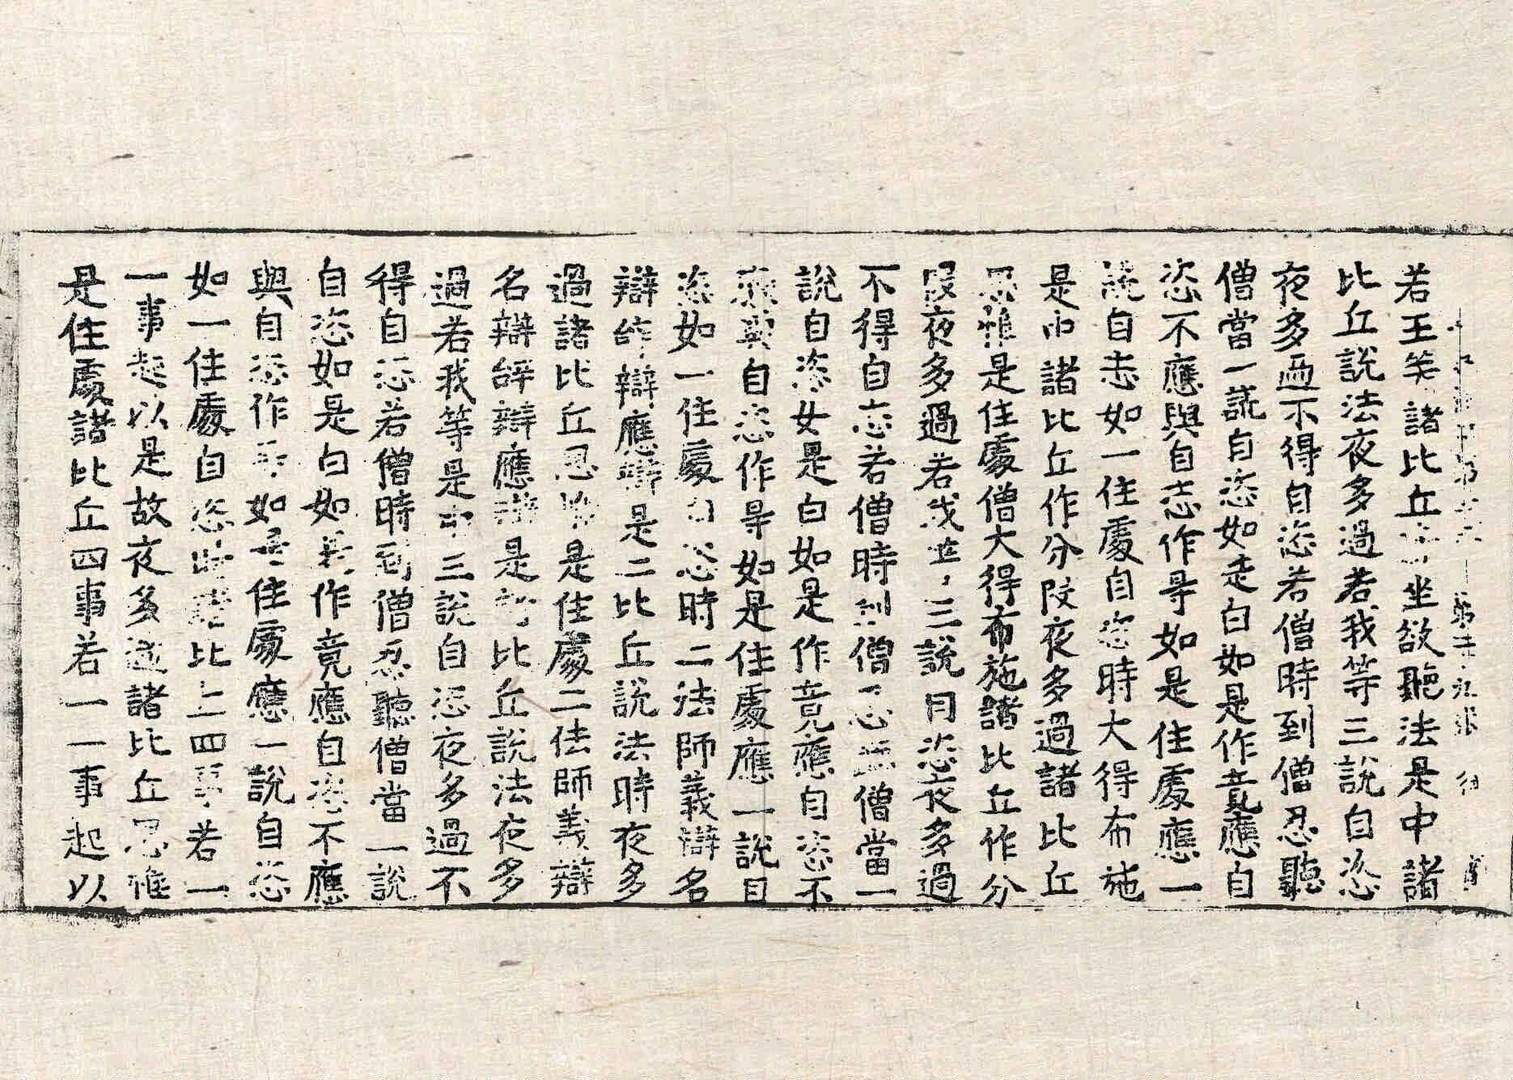 若王等諸比丘坐欲聽法是中諸
比丘說法夜多過若我等三說自恣
夜多過不得自恣若僧時到僧忍聽
僧當一說自恣如是白如是作竟應自
恣不應與自恣作㝵如是住處應一
說自恣如一住處自恣時大得布施
是中諸比丘作分段夜多過諸比丘
思惟是住處僧大得布施諸比丘作分
段夜多過若我等三說自恣夜多過
不得自恣若僧時到僧忍聽僧當一
說自恣如是白如是作竟應自恣不
應與自恣作㝵如是住處應一說自
恣如一住處自恣時二法師義辯名
辯辝辯應辯是二比丘說法時夜多
過諸比丘思惟是住處二法師義辯
名辯辝辯應辯是諸比丘說法夜多
過若我等是中三說自恣夜多過不
得自恣若僧時到僧忍聽僧當一說
自恣如是白如是作竟應自恣不應
與自恣作㝵如是住處應一說自恣
如一住處自恣時諸比丘四事若一
一事起以是故夜多過諸比丘思惟
是住處諸比丘四事若一一事起以